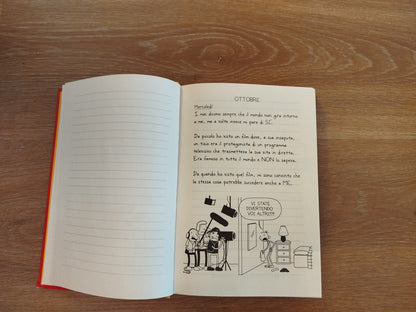 OTTOBRE
Mercoledì
I miei dicono sempre che il mondo non gira intorno
a me, ma a volte invece mi pare di SÌ.
Da piccolo ho visto un film dove, a sua insaputa,
un tizio era il protagonista di un programma
televisivo che trasmetteva la sua vita in diretta.
Era famoso in tutto il mondo e NON lo sapeva.
Da quando ho visto quel film, mi sono convinto che
la stessa cosa potrebbe succedere anche a ME.
VI STATE
DIVERTENDO
VOI ALTRI?!?